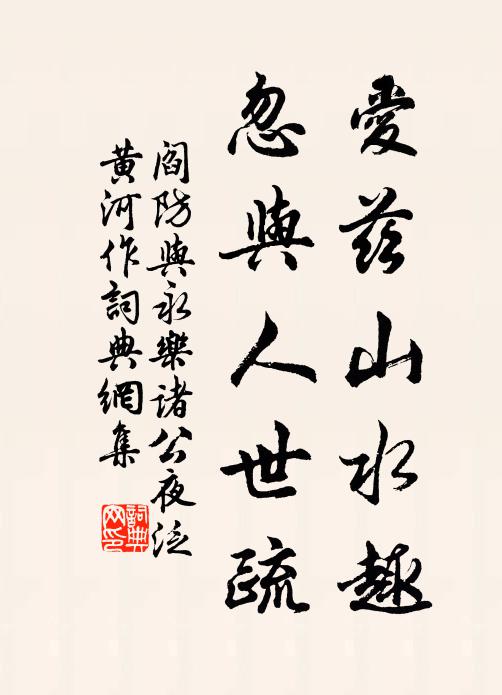 愛茲山水趣
忽與人世疏
閻防與永樂諸公夜泛
黃河作詞典網集
詞典網印